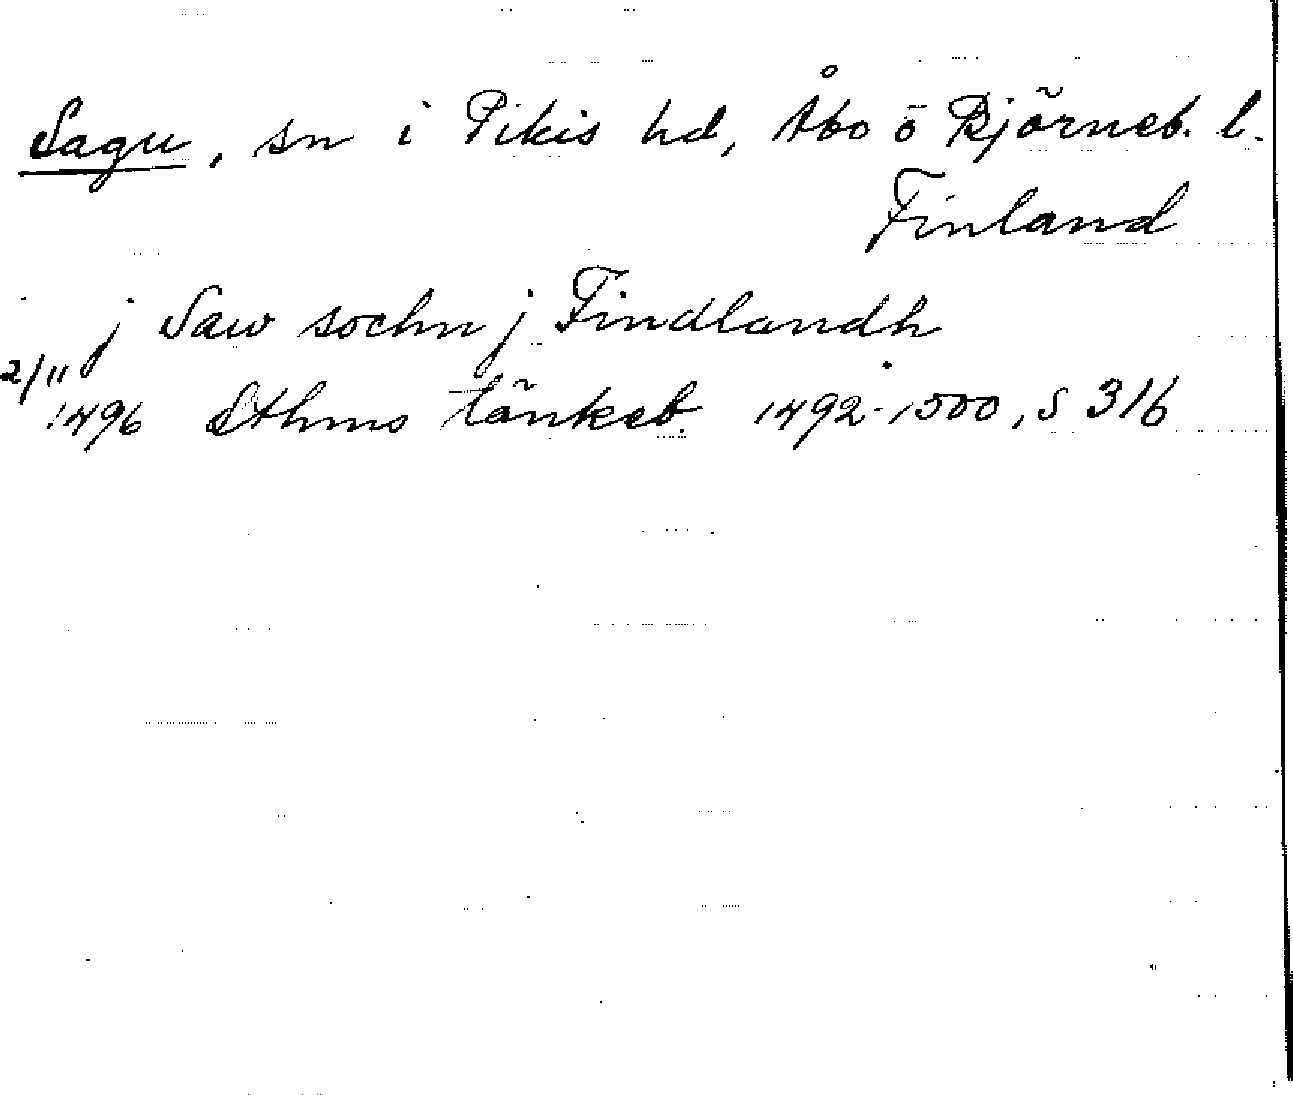 Sagu, sn i Pikis hd, Åbo o Björneb. l.
Finland
j Saw sochn j Findlandh
2/11
1496 Sthms tänkeb. 1492-1500, s 316